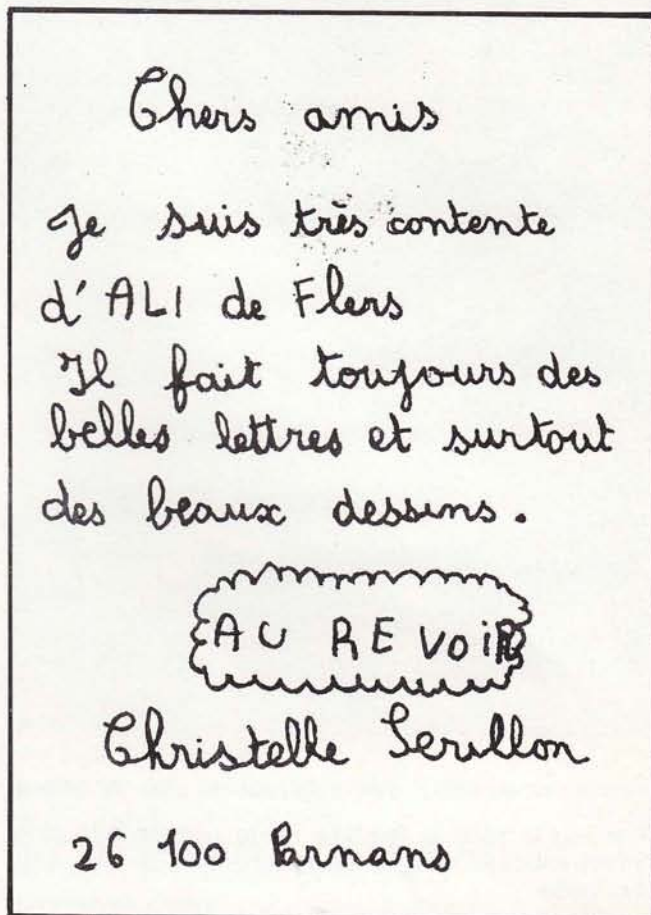 Chers amis
Je suis très contente
d'ALI de Flers
Il fait toujours des
belles lettres et surtout
des beaux dessins.
AU REVOIR
Christelle Serillon
26 100 Parnans